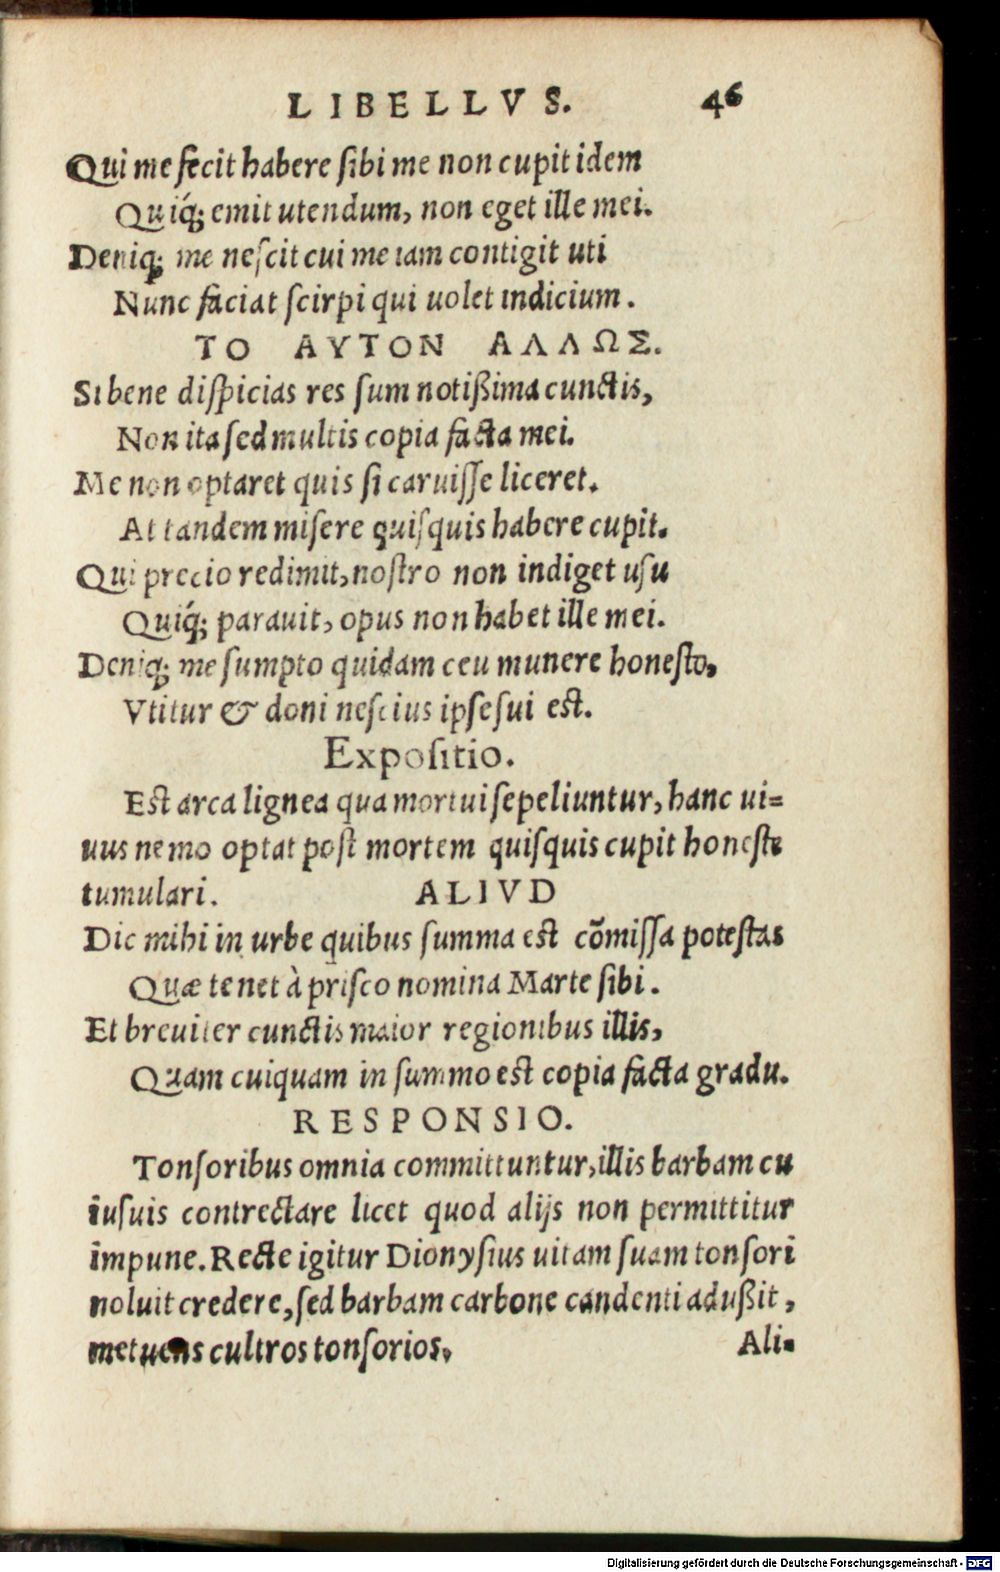 LIBELLVS. 46
Qui me fecit habere sibi me non cupit idem
Quiq́; emit utendum, non eget ille mei.
Deniq; me nescit cui me iam contigit uti
Nunc faciat scirpi qui uolet indicium.
ΤΟ ΑΥΤΟΝ ΑΛΛΩΣ.
Si bene dispicias res sum notißima cunctis,
Non ita sed multis copia facta mei.
Me non optaret quis si caruisse liceret.
At tandem misere quisquis habere cupit.
Qui precio redimit, nostro non indiget usu
Quiq́; parauit, opus non habet ille mei.
Deniq; me sumpto quidam ceu munere honesto,
Vtitur & doni nescius ipse sui est.
Expositio.
Est arca lignea qua mortui sepeliuntur, hanc ui=
uus nemo optat post mortem quisquis cupit honeste
tumulari. ALIVD
Dic mihi in urbe quibus summa est cõmissa potestas
Quæ tenet à prisco nomina Marte sibi.
Et breuiter cunctis maior regionibus illis,
Quam cuiquam in summo est copia facta gradu.
RESPONSIO.
Tonsoribus omnia committuntur, illis barbam cu
iusuis contrectare licet quod alijs non permittitur
impune. Recte igitur Dionysius uitam suam tonsori
noluit credere, sed barbam carbone candenti adußit,
metuens cultros tonsorios. Ali-
Digitalisierung gefördert durch die Deutsche Forschungsgemeinschaft - DFG